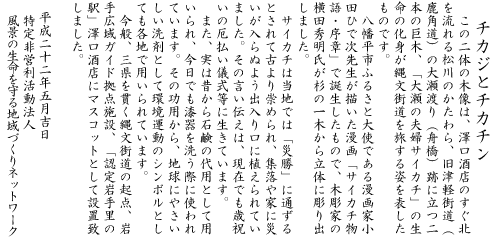 チカジとチカチン
この二体の木像は、澤口酒店のすぐ北
を流れる松川のかたわら、旧津軽街道（
鹿角道）の大瀬渡り（舟橋）跡に立つ二
本の巨木、「大瀬の夫婦サイカチ」の生
命の化身が縄文街道を旅する姿を表した
ものです。
八幡平市ふるさと大使である漫画家小
田ひで次先生が描いた漫画「サイカチ物
語・序章」で誕生したもので、木彫家の
横田秀明氏が杉の一木から立体に彫り出
しました。
サイカチは当地では「災勝」に通ずる
とされて古より崇められ、集落や家に災
いが入らぬよう出入り口に植えられてい
ました。その言い伝えは、現在でも歳祝
いの厄払い儀式等に生きています。
また、実は昔から石鹸の代用として用
いられ、今日でも漆器を洗う際に使われ
ています。その功用から、地球にやさい
しい洗剤として環境運動のシンボルとし
ても各地で用いられています。
今般、三県を貫く縄文街道の起点、岩
手広域ガイド拠点施設、「認定岩手里の
駅」澤口酒店にマスコットとして設置致
しました。
平成二十二年五月吉日
特定非営利活動法人
風景の生命を守る地域づくりネットワーク